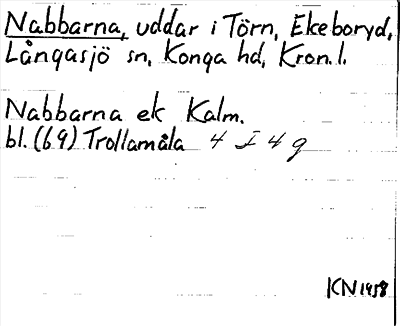 Nabbarna, uddar i Törn, Ekeboryd,
Långasjö sn, Konga hd, Kron.l.
Nabbarna ek Kalm.
bl. (69) Trollamåla 4 I 4 g
KN 1958